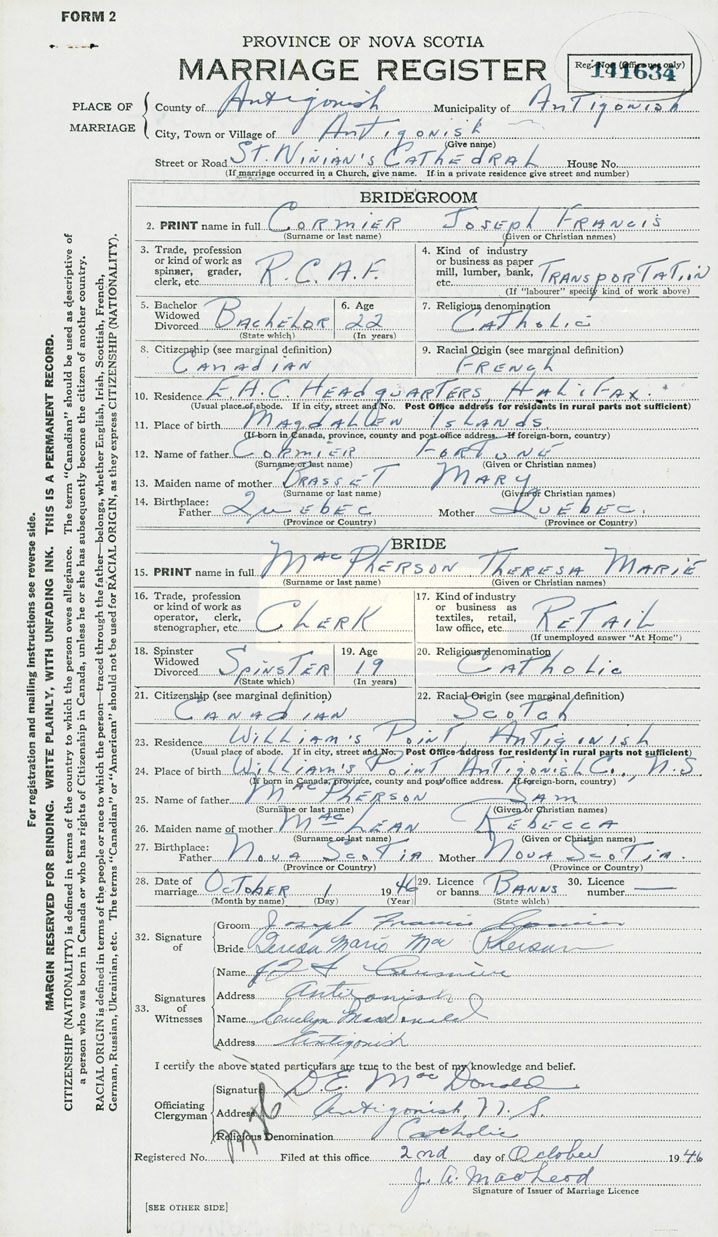 FORM 2
PROVINCE OF NOVA SCOTIA
MARRIAGE REGISTER
Reg. No. (Office use only)
141634
PLACE OF MARRIAGE
County of Antigonish Municipality of Antigonish
City, Town or Village of Antigonish
(Give name)
Street or Road St. Ninian's Cathedral House No.
(If marriage occurred in a Church, give name. If in a private residence give street and number)
BRIDEGROOM
2. PRINT name in full Cormier Joseph Francis
(Surname or last name) (Given or Christian names)
3. Trade, profession or kind of work as spinner, grader, clerk, etc. R.C.A.F.
4. Kind of industry or business as paper mill, lumber, bank, etc. Transportation
(If "labourer" specify kind of work above)
5. Bachelor Widowed Divorced Bachelor
(State which)
6. Age 22
(In years)
7. Religious denomination
Catholic
8. Citizenship (see marginal definition)
Canadian
9. Racial Origin (see marginal definition)
French
10. Residence E.A.C. Headquarters, Halifax.
(Usual place of abode. If in city, street and No. Post Office address for residents in rural parts not sufficient)
11. Place of birth Magdallen Islands
(If born in Canada, province, county and post office address. If foreign-born, country)
12. Name of father Cormier Fortuné
(Surname or last name) (Given or Christian names)
13. Maiden name of mother Brasset Mary
(Surname or last name) (Given or Christian names)
14. Birthplace: Father Quebec Mother Quebec.
(Province or Country) (Province or Country)
BRIDE
15. PRINT name in full MacPherson Theresa Marie
(Surname or last name) (Given or Christian names)
16. Trade, profession or kind of work as operator, clerk, stenographer, etc. Clerk
17. Kind of industry or business as textiles, retail, law office, etc. Retail
(If unemployed answer "At Home")
18. Spinster Widowed Divorced Spinster
(State which)
19. Age 19
(In years)
20. Religious denomination
Catholic
21. Citizenship (see marginal definition)
Canadian
22. Racial Origin (see marginal definition)
Scotch
23. Residence William's Point, Antigonish
(Usual place of abode. If in city, street and No. Post Office address for residents in rural parts not sufficient)
24. Place of birth William's Point Antigonish Co., N.S
(If born in Canada, province, county and post office address. If foreign-born, country)
25. Name of father MacPherson Sam
(Surname or last name) (Given or Christian names)
26. Maiden name of mother MacLean Rebecca
(Surname or last name) (Given or Christian names)
27. Birthplace: Father Nova Scotia Mother Nova Scotia.
(Province or Country) (Province or Country)
28. Date of marriage October 1 1946
(Month by name) (Day) (Year)
29. Licence or banns Banns
(State which)
30. Licence number
32. Signature of
Groom Joseph Francis Cormier
Bride Teresa Marie MacPherson
33. Signatures of Witnesses
Name Cormier
Address Antigonish
Name Macdonald
Address Antigonish
I certify the above stated particulars are true to the best of my knowledge and belief.
Officiating Clergyman
Signature D.E. MacDonald
Address Antigonish, N.S.
Religious Denomination Catholic
Registered No. Filed at this office 2nd day of October 1946
J. A. MacLeod
Signature of Issuer of Marriage Licence
[SEE OTHER SIDE]
For registration and mailing instructions see reverse side.
MARGIN RESERVED FOR BINDING. WRITE PLAINLY, WITH UNFADING INK. THIS IS A PERMANENT RECORD.
CITIZENSHIP (NATIONALITY) is defined in terms of the country to which the person owes allegiance. The term "Canadian" should be used as descriptive of
a person who was born in Canada or who has rights of Citizenship in Canada, unless he or she has subsequently become the citizen of another country.
RACIAL ORIGIN is defined in terms of the people or race to which the person—traced through the father—belongs, whether English, Irish, Scottish, French,
German, Russian, Ukrainian, etc. The terms "Canadian" or "American" should not be used for RACIAL ORIGIN, as they express CITIZENSHIP (NATIONALITY).